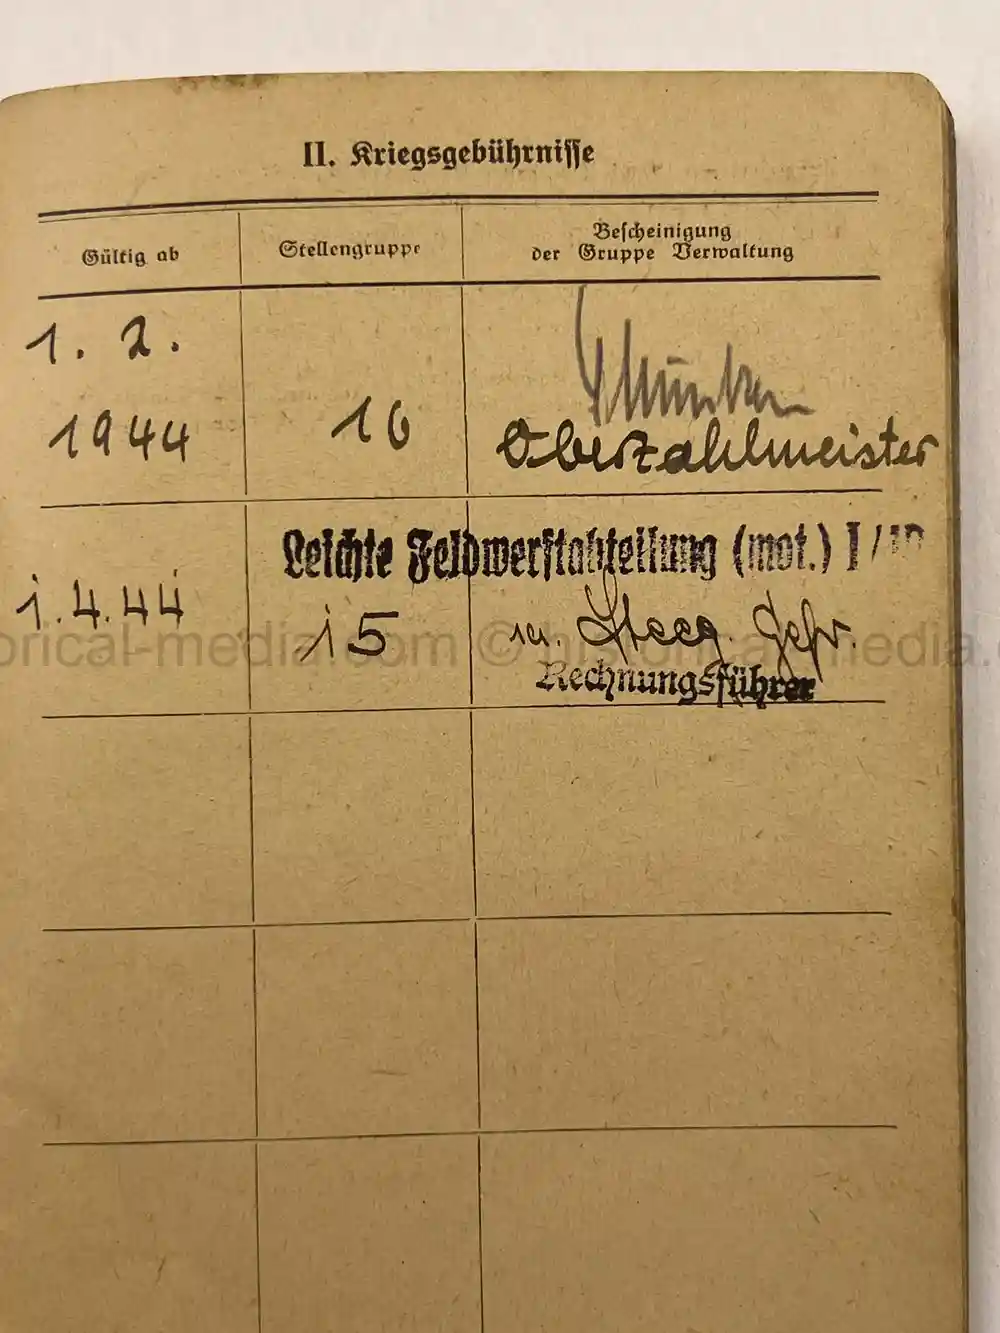 II. Kriegsgebührnisse
Gültig ab
Stellengruppe
Bescheinigung
der Gruppe Verwaltung
1. 2.
1944
16
Oberzahlmeister
Leichte Feldwerftabteilung (mot.) I /
1.4.44
15
Gefr.
Rechnungsführer
orical-media.com © historical-media.